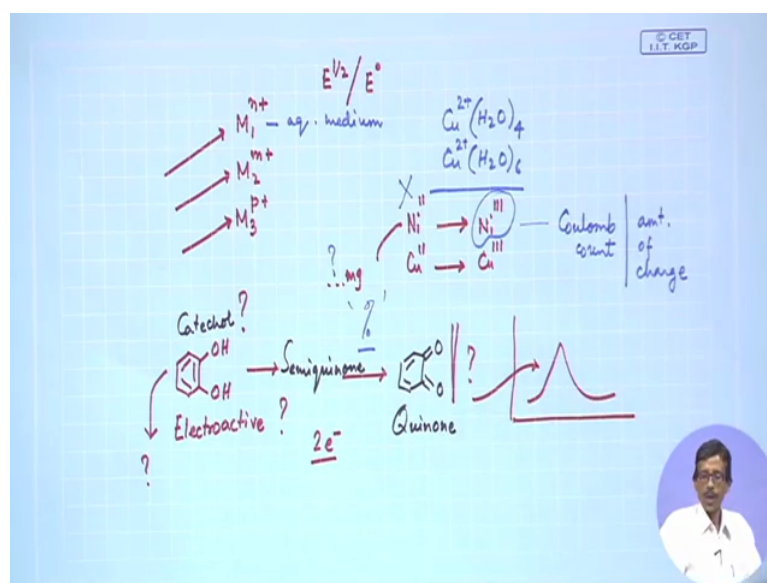 © CET
I.I.T. KGP
E^1/2 / E°
M₁ⁿ⁺ — aq. medium
M₂ᵐ⁺
M₃ᵖ⁺
Cu²⁺(H₂O)₄
Cu²⁺(H₂O)₆
X
Niᴵᴵ → Niᴵᴵᴵ — Coulomb count | amt. of charge
Cuᴵᴵ → Cuᴵᴵᴵ
?
...mg
'%'
Catechol ?
OH
OH
→ Semiquinone →
O
O
?
Electroactive ?
2e⁻
Quinone
?